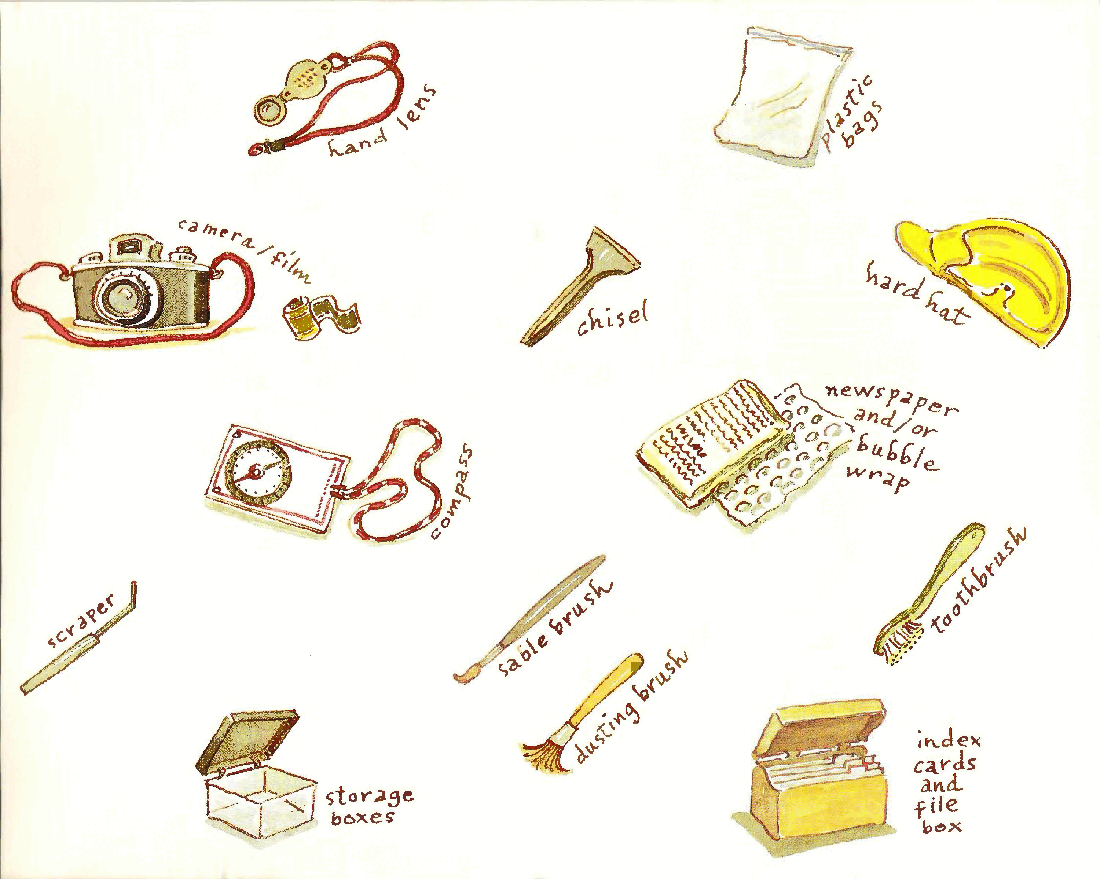 hand lens
plastic
bags
camera/film
chisel
hard hat
newspaper
and/or
bubble
wrap
compass
scraper
sable brush
toothbrush
dusting brush
storage
boxes
index
cards
and
file
box